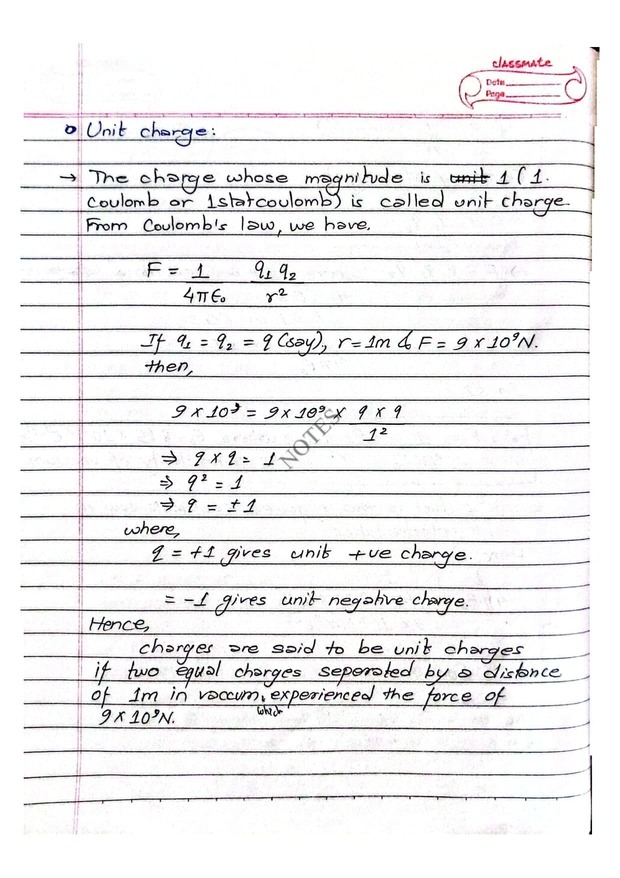 classmate
Date
Page
Unit charge:
→ The charge whose magnitude is unit 1 (1.
Coulomb or 1statcoulomb) is called unit charge.
From Coulomb's law, we have.
F = 1 q₁ q₂
4πε₀ r²
If q₁ = q₂ = q (say), r = 1m & F = 9 × 10⁹N.
then,
9 × 10⁹ = 9 × 10⁹ × q × q
1²
⇒ q × q = 1
⇒ q² = 1
⇒ q = ±1
where,
q = +1 gives unit +ve charge.
= -1 gives unit negative charge.
Hence,
charges are said to be unit charges
if two equal charges seperated by a distance
of 1m in vaccum, experienced the force of
which
9 × 10⁹N.
NOTES